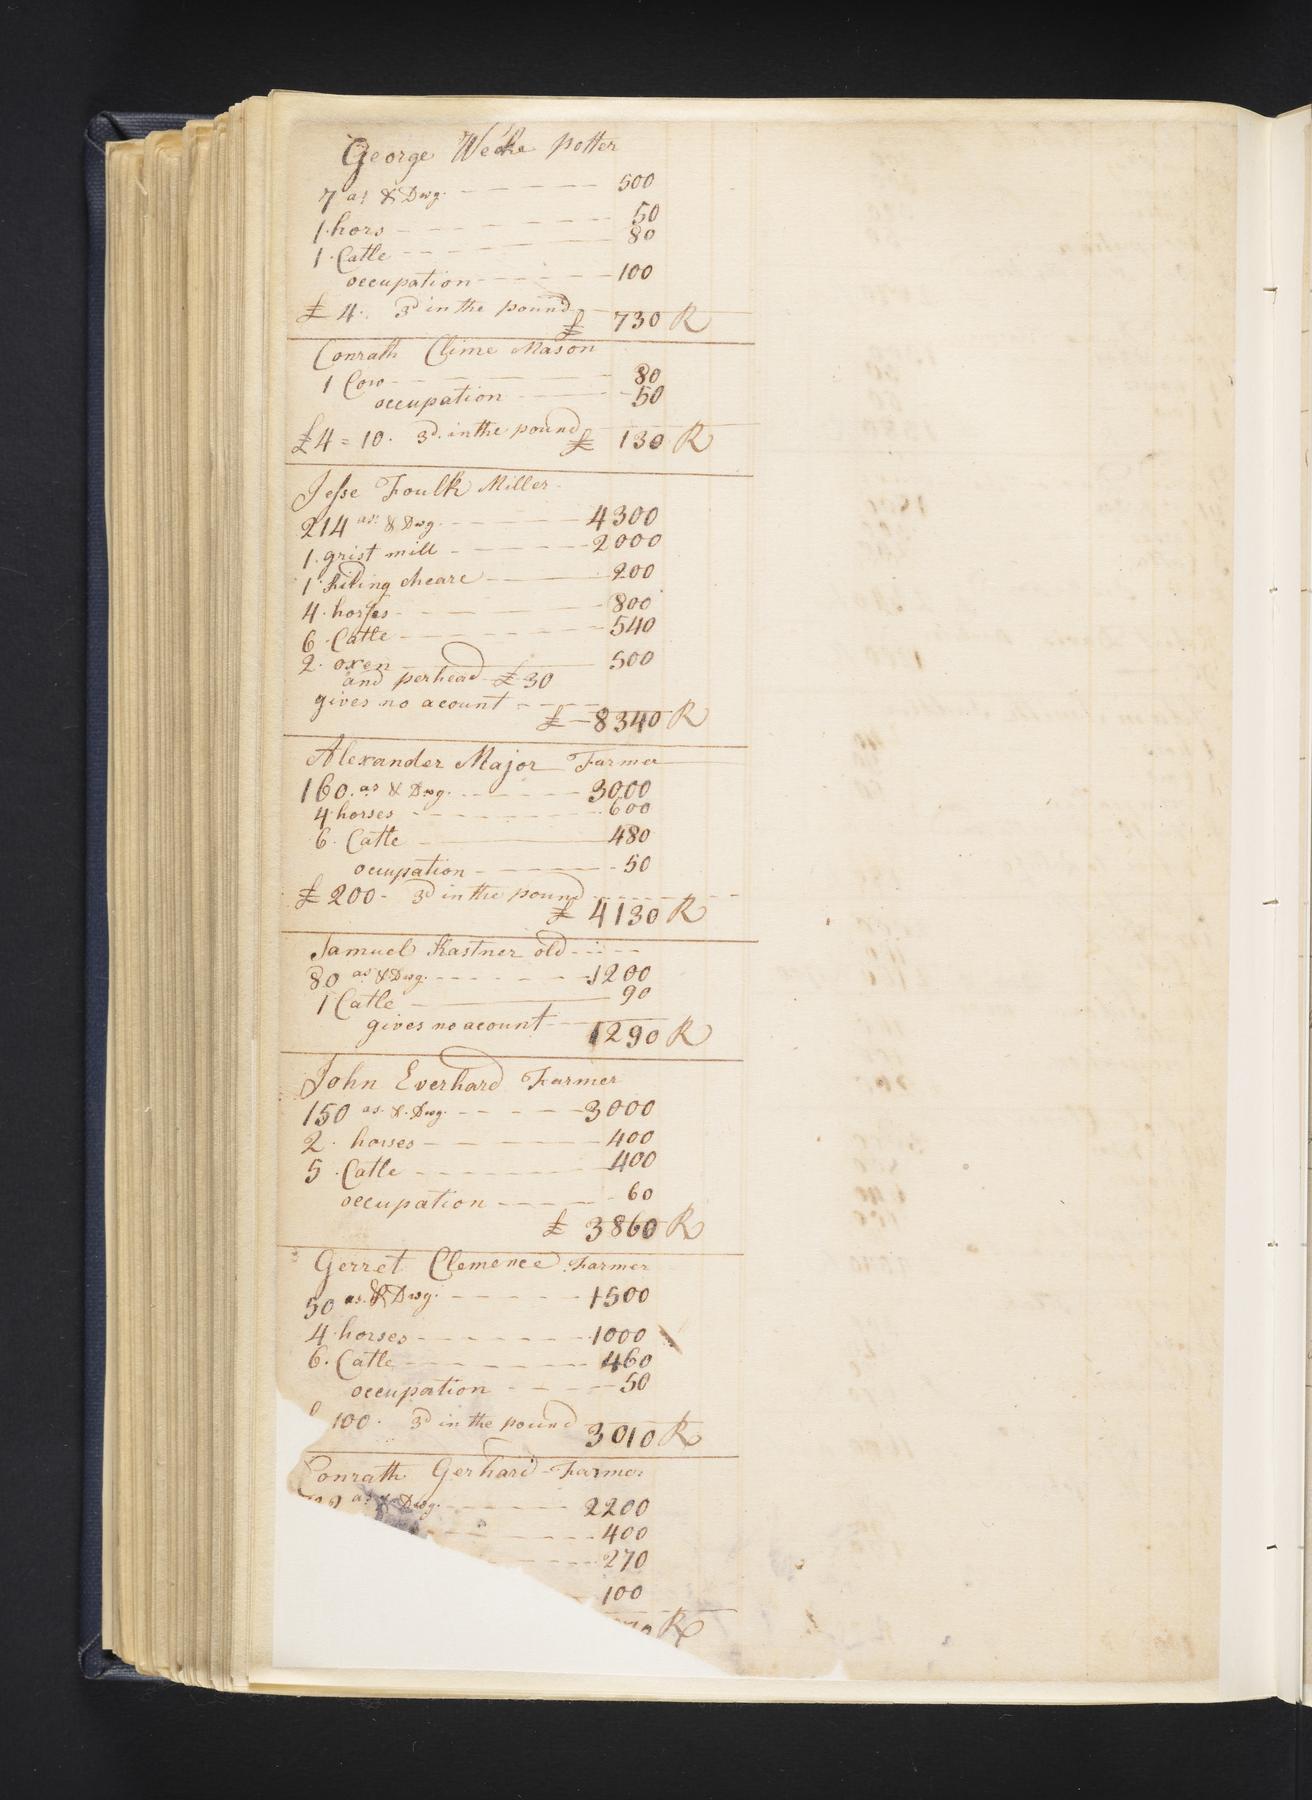 George Weeke Potter
7 as & Dwg. 500
1 hors 50
1 Catle 80
occupation 100
£ 4 3d in the pound
£ 730 R
Conrath Clime Mason
1 Cow 80
occupation 50
£4 = 10. 3d. in the pound £ 130 R
Jesse Foulk Miller
214 as. & Dwg. 4300
1 grist mill 2000
1 Riding cheare 200
4 horses 800
6 Catle 540
2 oxen 500
and perhead £30
gives no acount
£ 8340 R
Alexander Major Farmer
160 as & Dwg. 3000
4 horses 600
6 Catle 480
occupation 50
£ 200 3d in the pound
£ 4130 R
Samuel Kastner old
80 as & Dwg. 1200
1 Catle 90
gives no acount 1290 R
John Everhard Farmer
150 as. & Dwg. 3000
2 horses 400
5 Catle 400
occupation 60
£ 3860 R
Gerret Clemence Farmer
50 as. & Dwg. 1500
4 horses 1000
6. Catle 460
occupation 50
100 3d in the pound 3010 R
Conrath Gerhard Farmer
as & Dwg. 2200
400
270
100
R